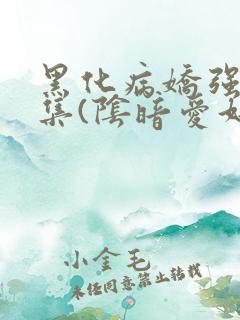 黑化病嬌强
集(陰暗愛
小金毛
未经同意禁止转载